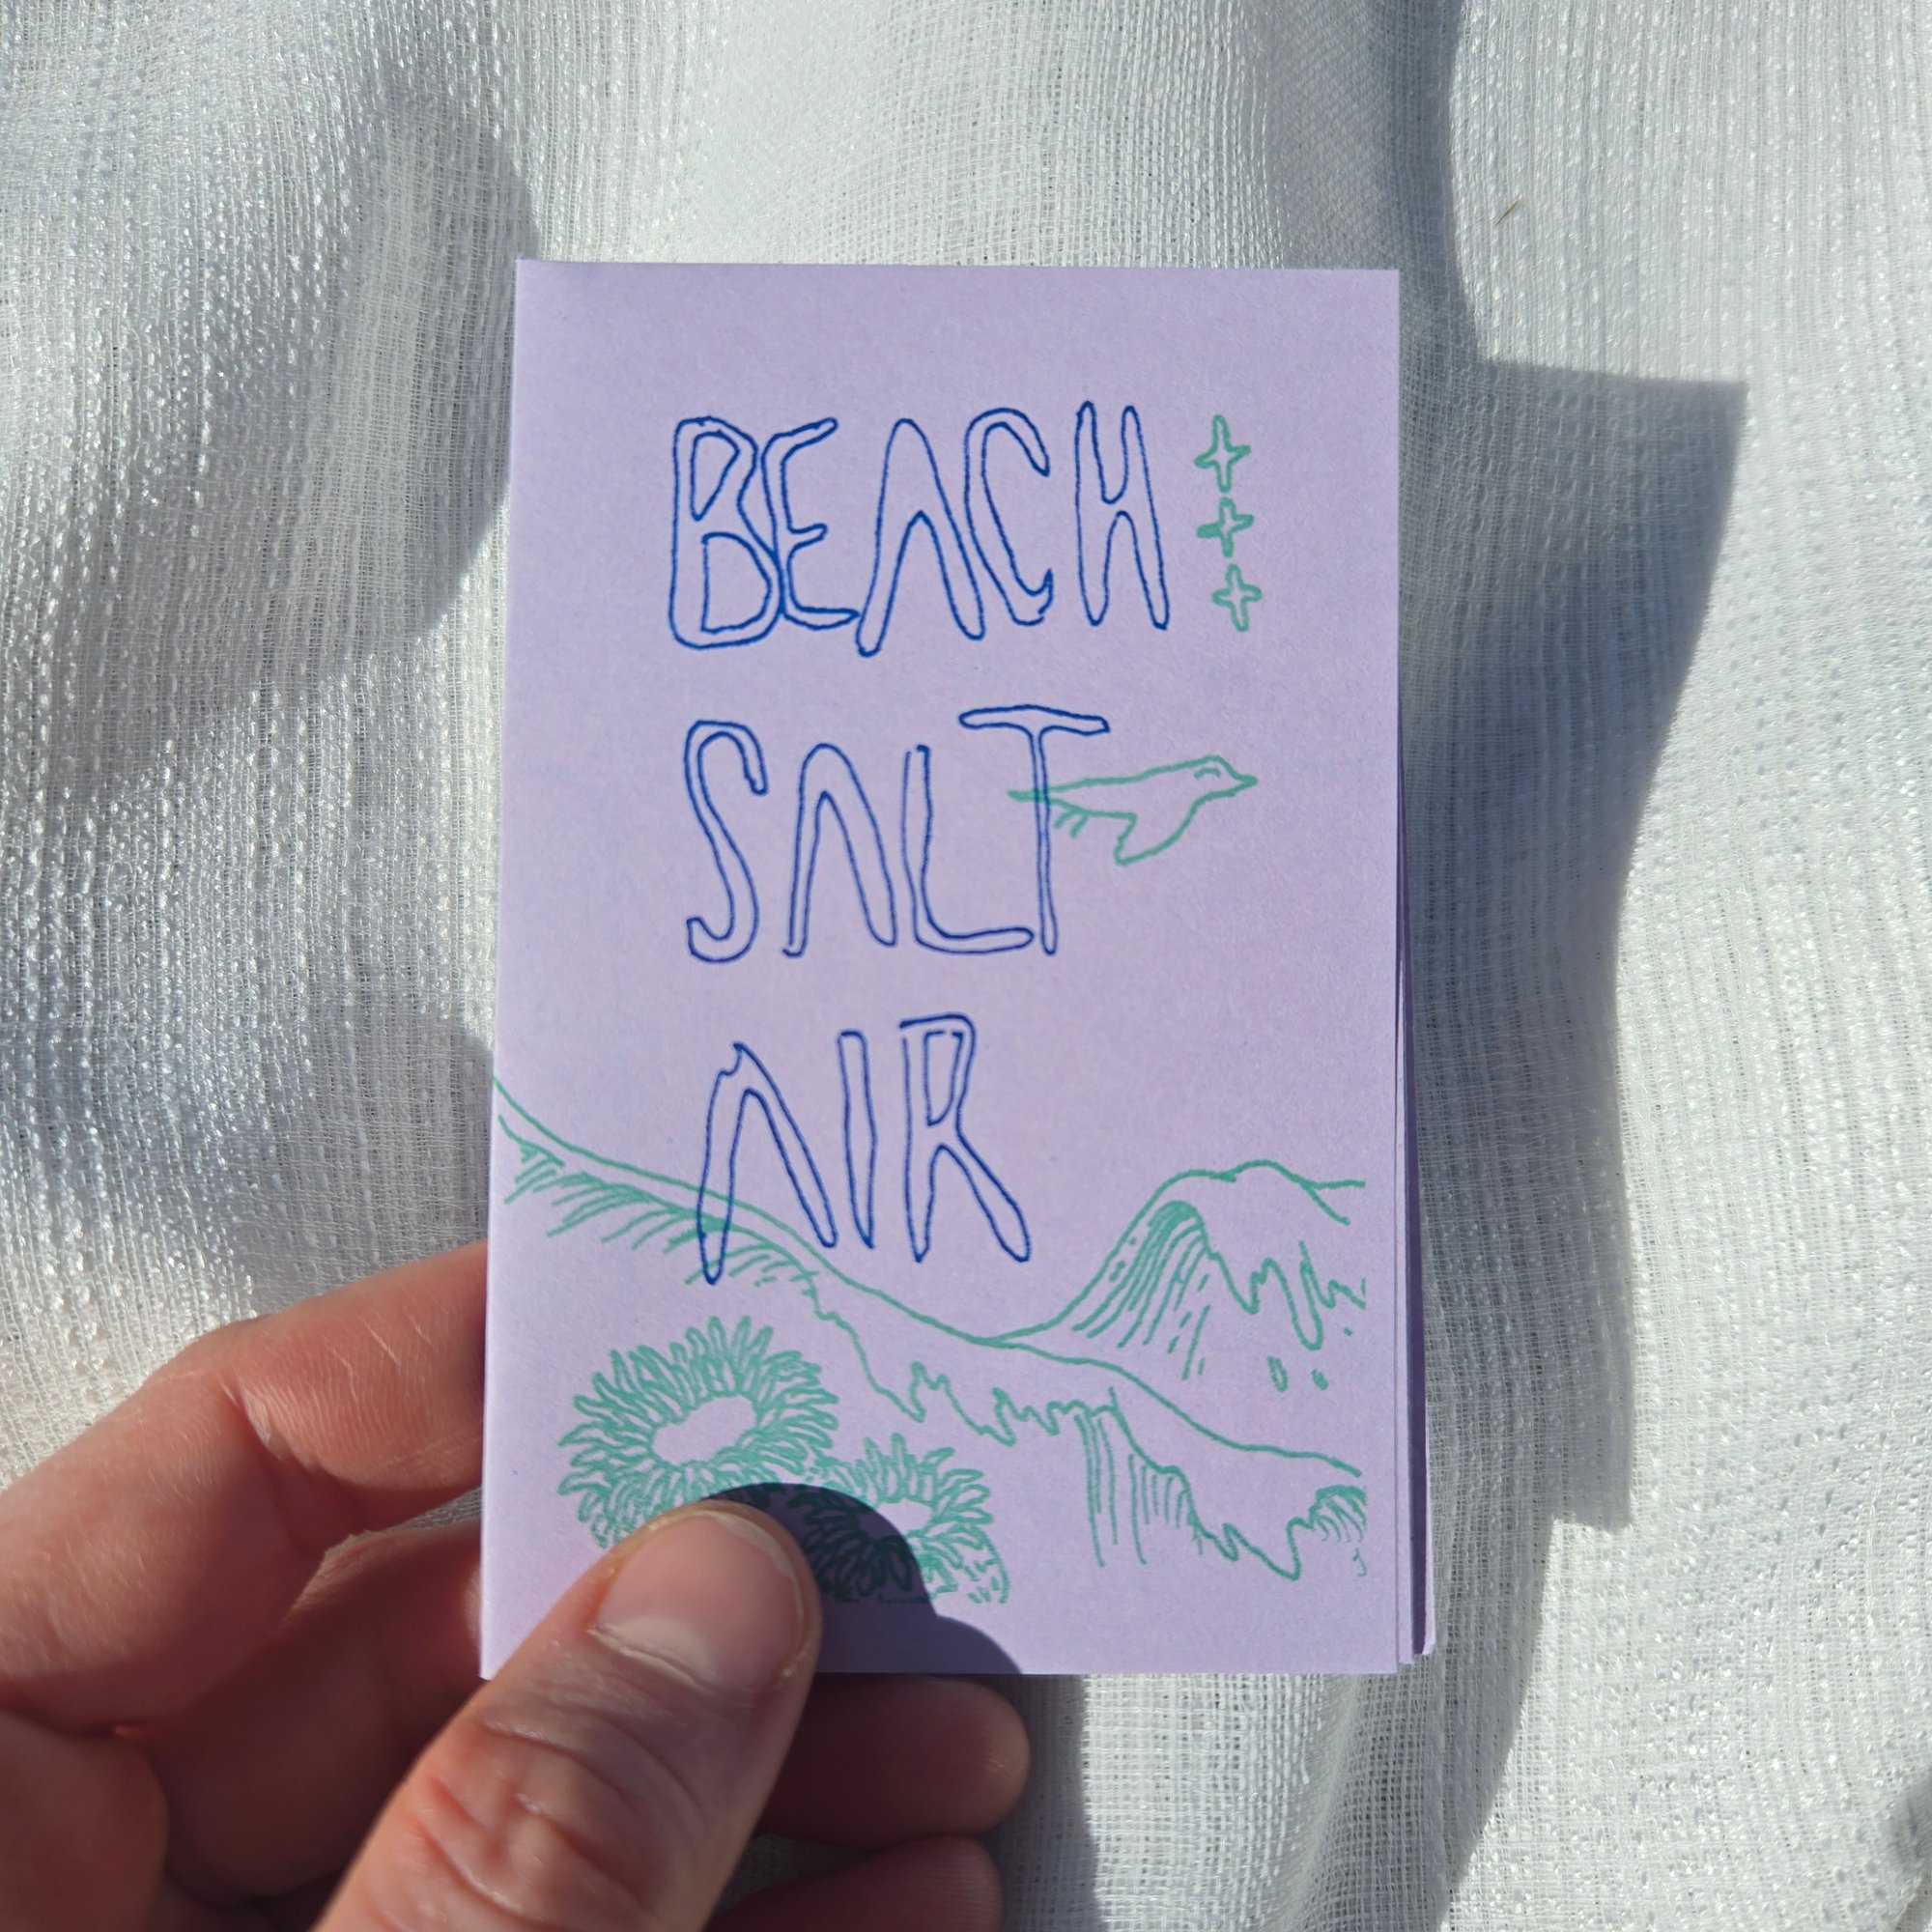 BEACH
SALT
AIR